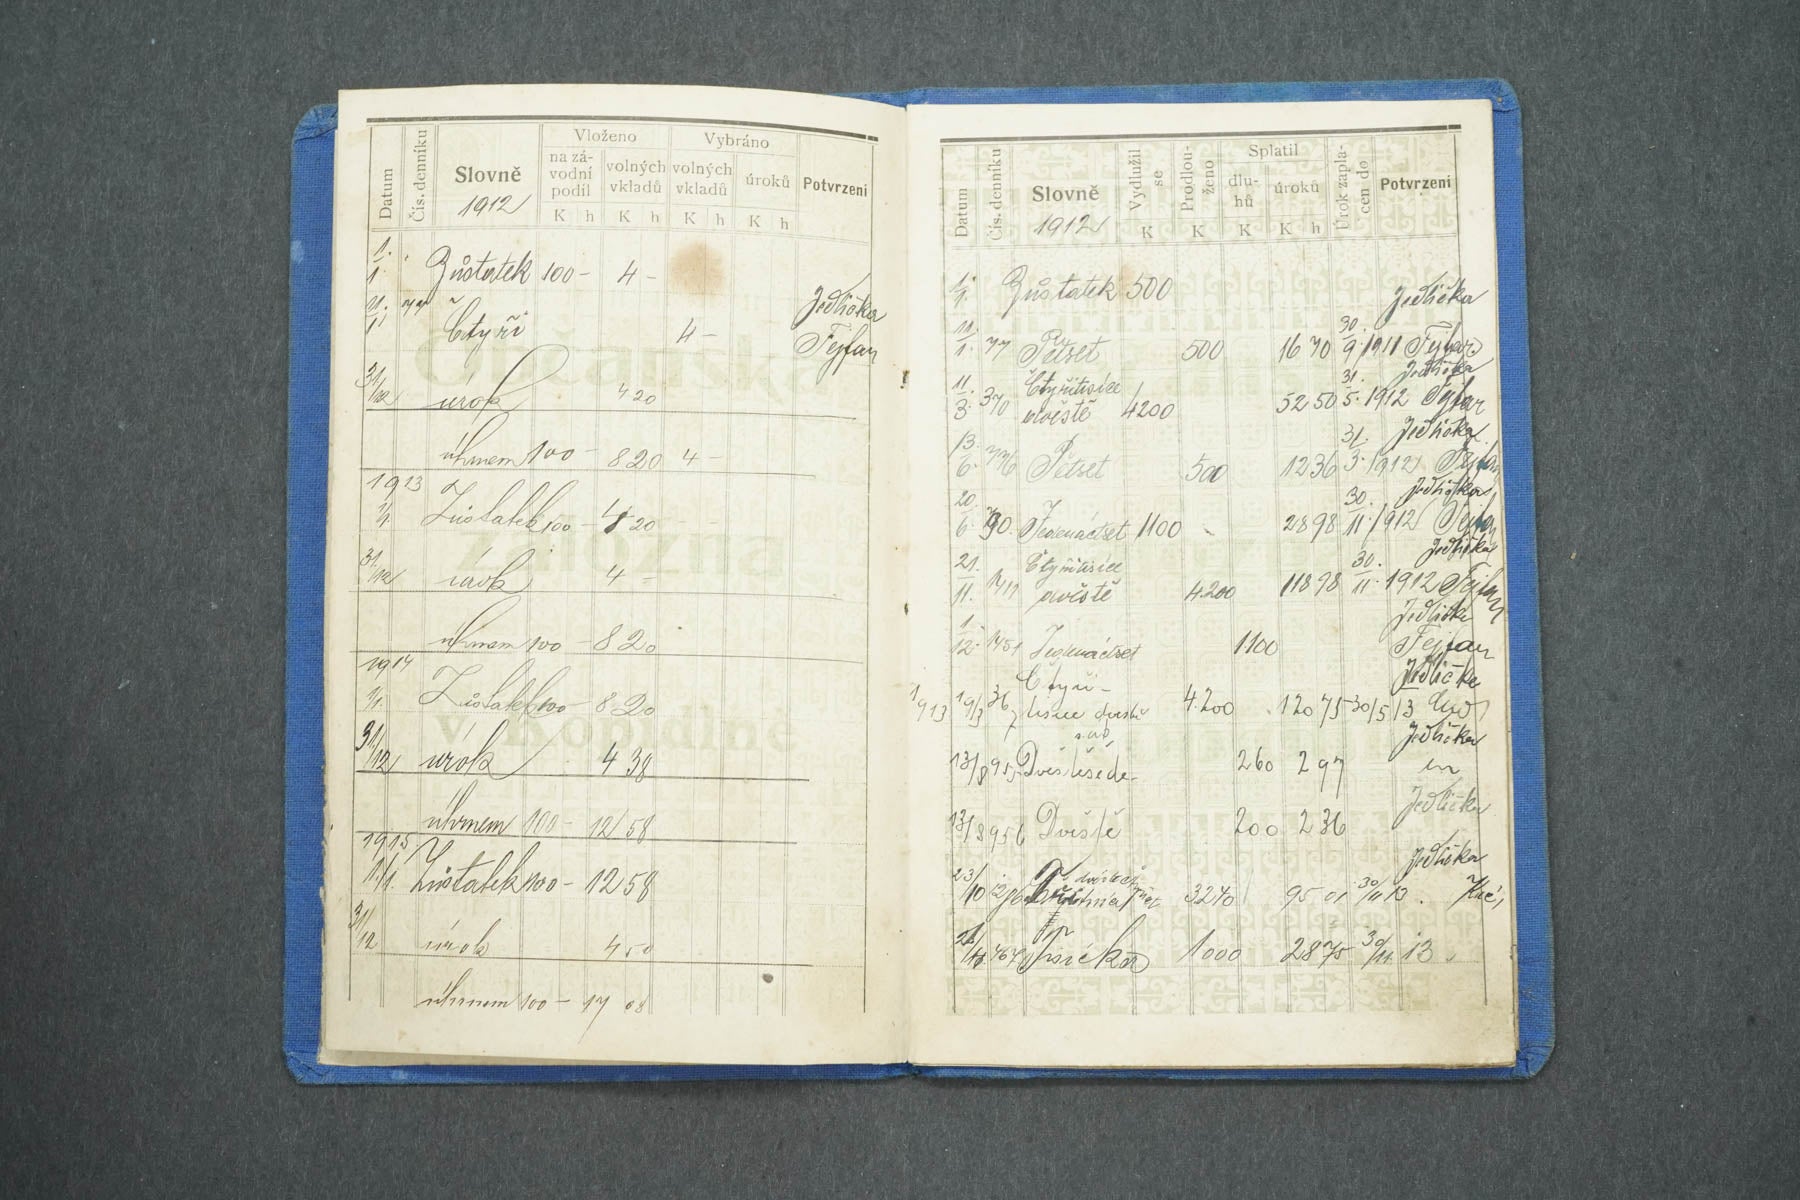 Datum Čís. denníku Slovně Vloženo Vybráno Potvrzení
na zá-
vodní
podíl volných
vkladů volných
vkladů úroků
1912 K h K h K h K h
1./1. Zůstatek 100 - 4 -
11./1 77 Čtyři 4 - Jedlička
Fejfar
31/12 úrok 4 20
úhrnem 100 - 8 20 4 -
1913
1/1. Zůstatek 100 - 4 20
31./12 úrok 4 -
úhrnem 100 - 8 20
1914
1/1. Zůstatek 100 - 8 20
31/12 úrok 4 38
úhrnem 100 - 12 58
1915
1/1. Zůstatek 100 - 12 58
31/12 úrok 4 50
úhrnem 100 - 17 08
Občanská
záložna
v Kopidlně
Datum Čís. denníku Slovně Vydlužil
se Prodlou-
ženo Splatil Úrok zapla-
cen do Potvrzení
dlu-
hů úroků
1912 K K K K h
1./1. Zůstatek 500 Jedlička
11./1. 77 Pětset 500 16 70 30./9. 1911 Fejfar
Jedlička
11./3. 370 Čtyřitisíce
dvěstě 4200 52 50 31./5. 1912 Fejfar
Jedlička
13./6. 776 Pětset 500 12 36 31./3. 1912 Fejfar
Jedlička
20/6. Jedenáctset 1100 28 98 30./11. 1912 Fejfar
Jedlička
21./11. Čtyřitisíce
dvěstě 4200 118 98 30./11. 1912 Fejfar
Jedlička
1./12. 1451 Jedenáctset 1100 Fejfar
Jedlička
1913 19/3 367 Čtyři-
tisíce dvěstě 4.200 120 75 30/5 13
Jedlička
13/8 955 Dvěstěšede-
sát 260 2 97
Jedlička
13/8 956 Dvěstě 200 2 36
Jedlička
23/10 3240 95 01 30/11 13.
Tisíc 1000 28 75 30/11. 13.